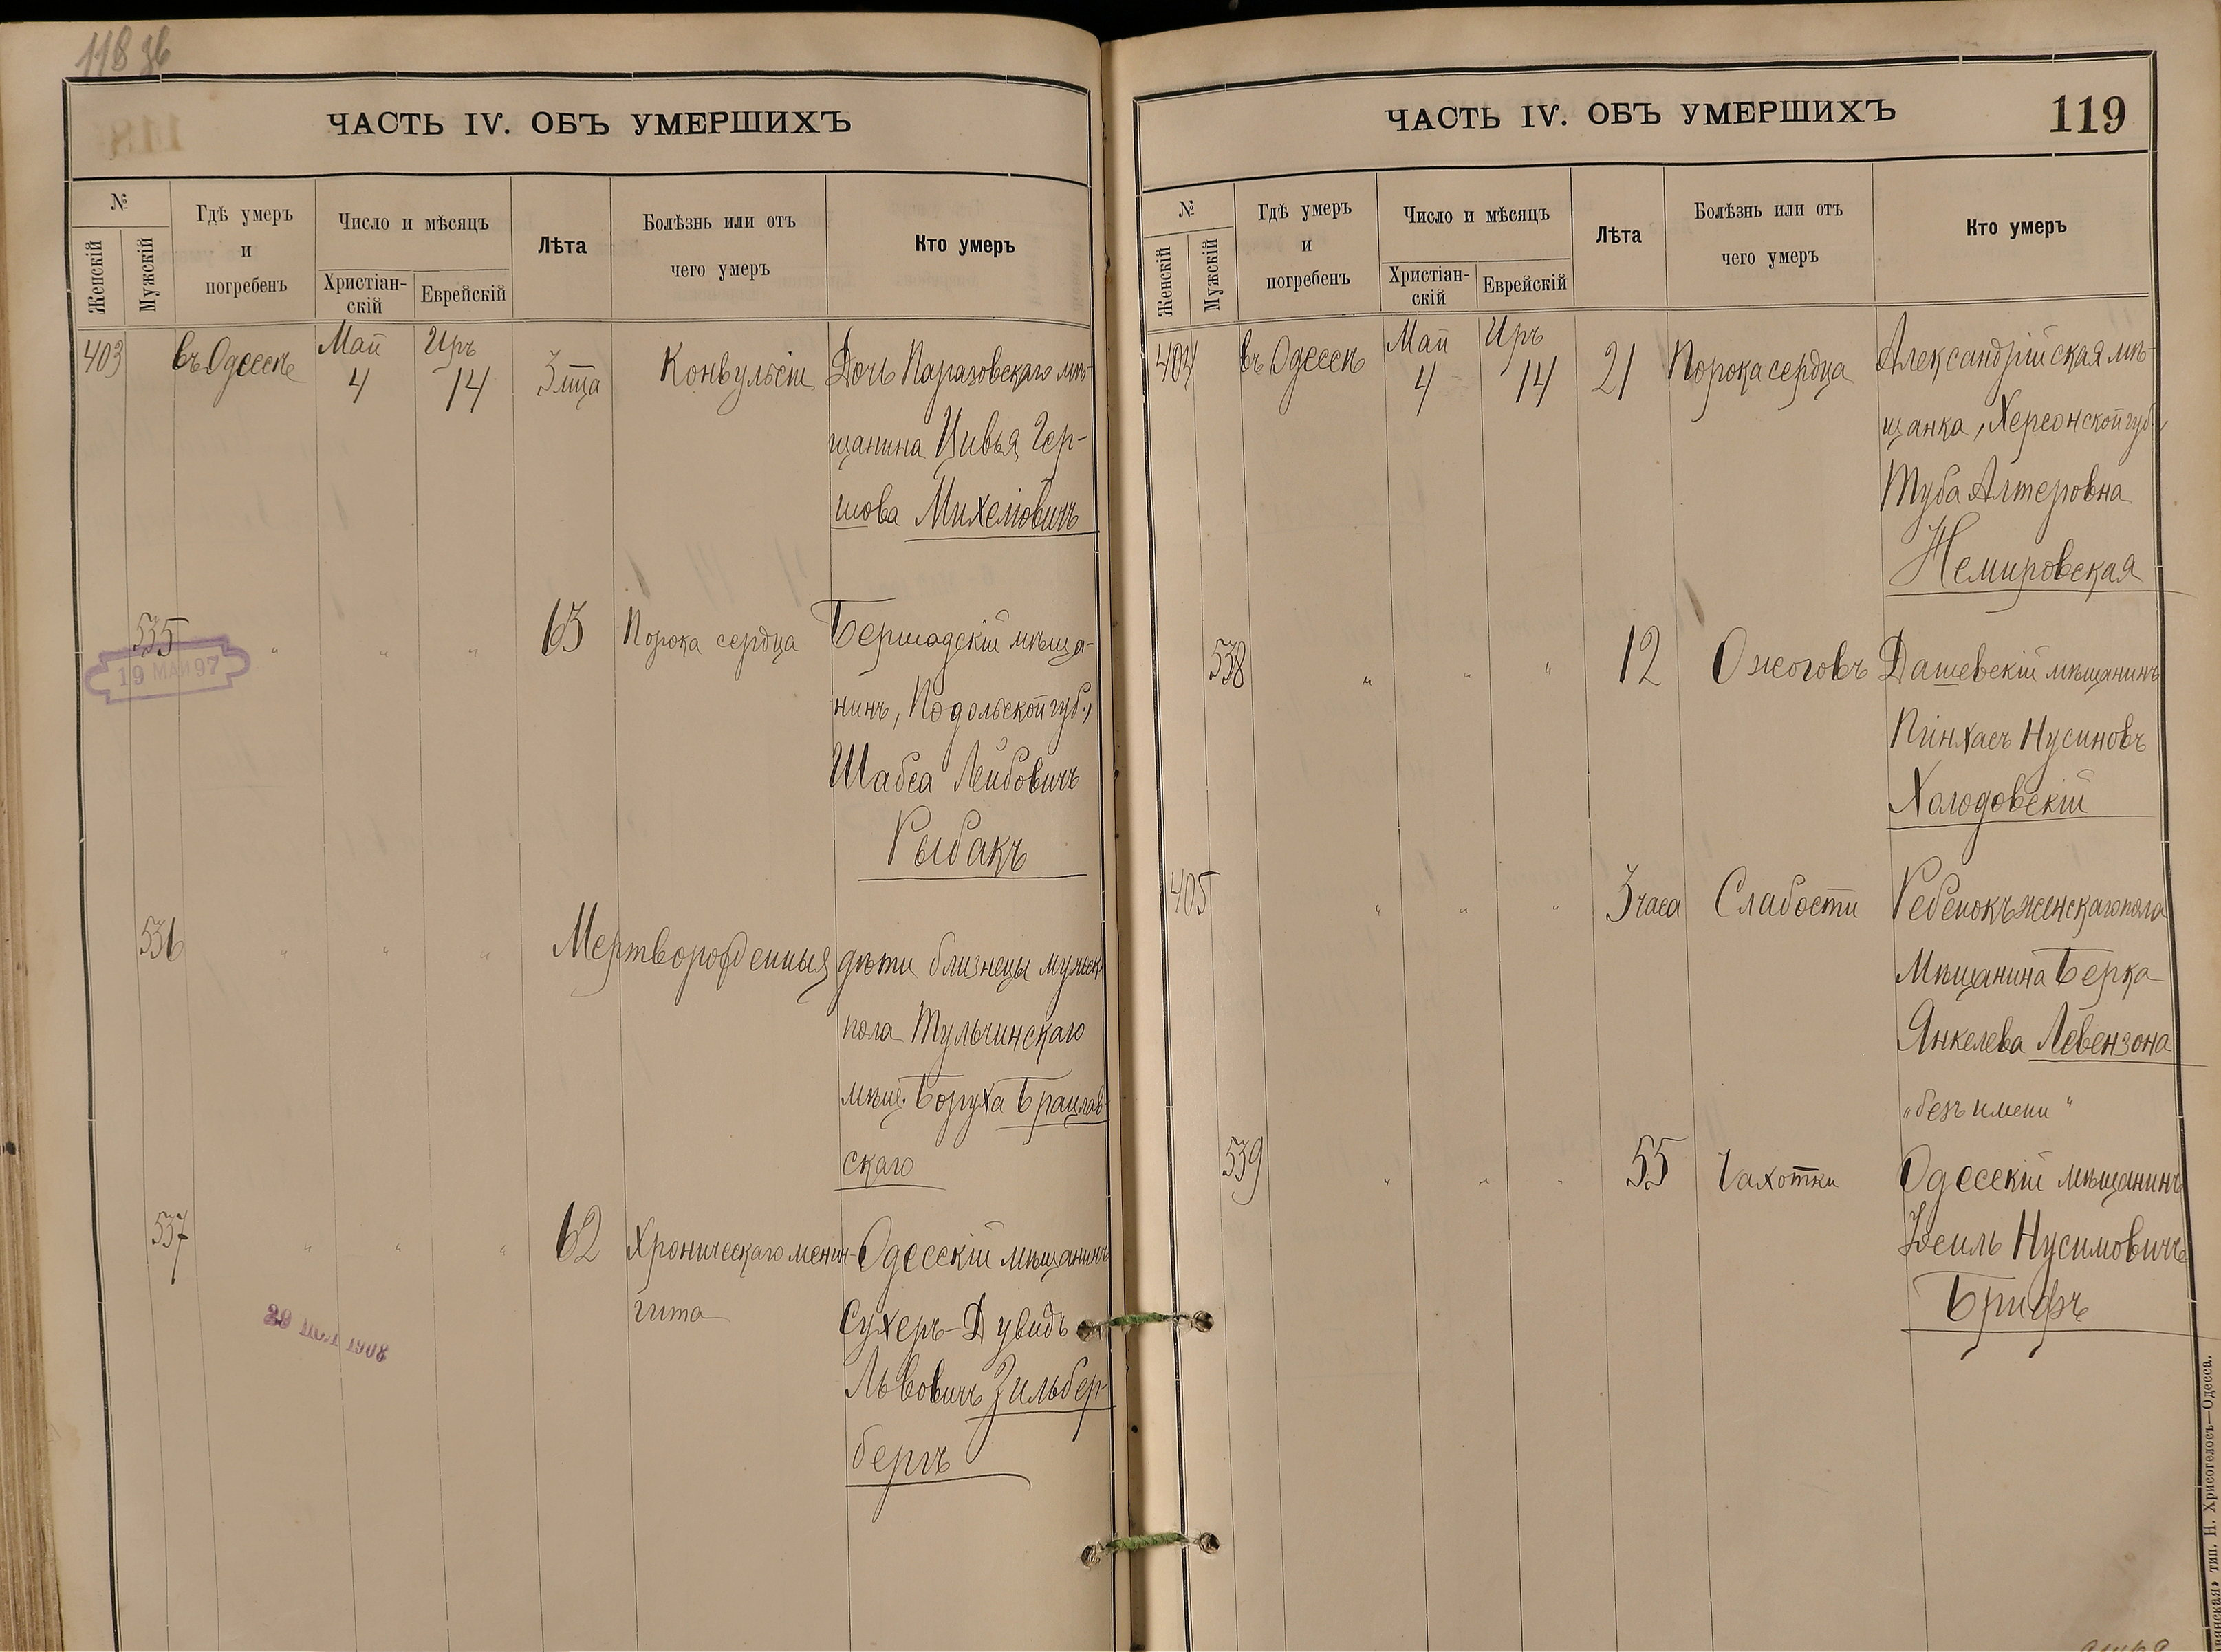 118 зв
ЧАСТЬ IV. ОБЪ УМЕРШИХЪ
№
Женскій
Мужскій
Гдѣ умеръ
и
погребенъ
Число и мѣсяцъ
Христіан-
скій
Еврейскій
Лѣта
Болѣзнь или отъ
чего умеръ
Кто умеръ
403
въ Одессѣ
Май
4
Иръ
14
3 мца
Конвульсіи
Дочь Паразовскаго мѣ-
щанина Цивья Гер-
шова Михелiовичъ
535
19 МАЙ 97
" " "
63
Порока сердца
Бершадскій мѣща-
нинъ, Подольской губ.,
Шабса Лейбовичъ
Рыбакъ
536
" " "
Мертворожденныя дѣти близнецы мужск.
пола Тульчинскаго
мѣщ. Боруха Брацлав-
скаго
537
" " "
62
Хроническаго менин-
гита
Одесскій мѣщанинъ
Сухеръ-Дувидъ
Львовичъ Зильбер-
бергъ
1908
ЧАСТЬ IV. ОБЪ УМЕРШИХЪ
119
№
Женскій
Мужскій
Гдѣ умеръ
и
погребенъ
Число и мѣсяцъ
Христіан-
скій
Еврейскій
Лѣта
Болѣзнь или отъ
чего умеръ
Кто умеръ
404
въ Одессѣ
Май
4
Иръ
14
21
Порока сердца
Александрійская мѣ-
щанка, Херсонской губ.,
Туба Алтеровна
Немировская
538
" " "
12
Ожоговъ
Дашевскій мѣщанинъ
Пинхасъ Нусиновъ
Холодовскій
405
" " "
3 часа
Слабости
Ребенокъ женскаго пола
Мѣщанина Берка
Янкелева Левензона
"безъ имени"
539
" " "
55
Чахотки
Одесскій мѣщанинъ
Нусимовичъ
Брифъ
тип. Н. Хрисогелосъ—Одесса.